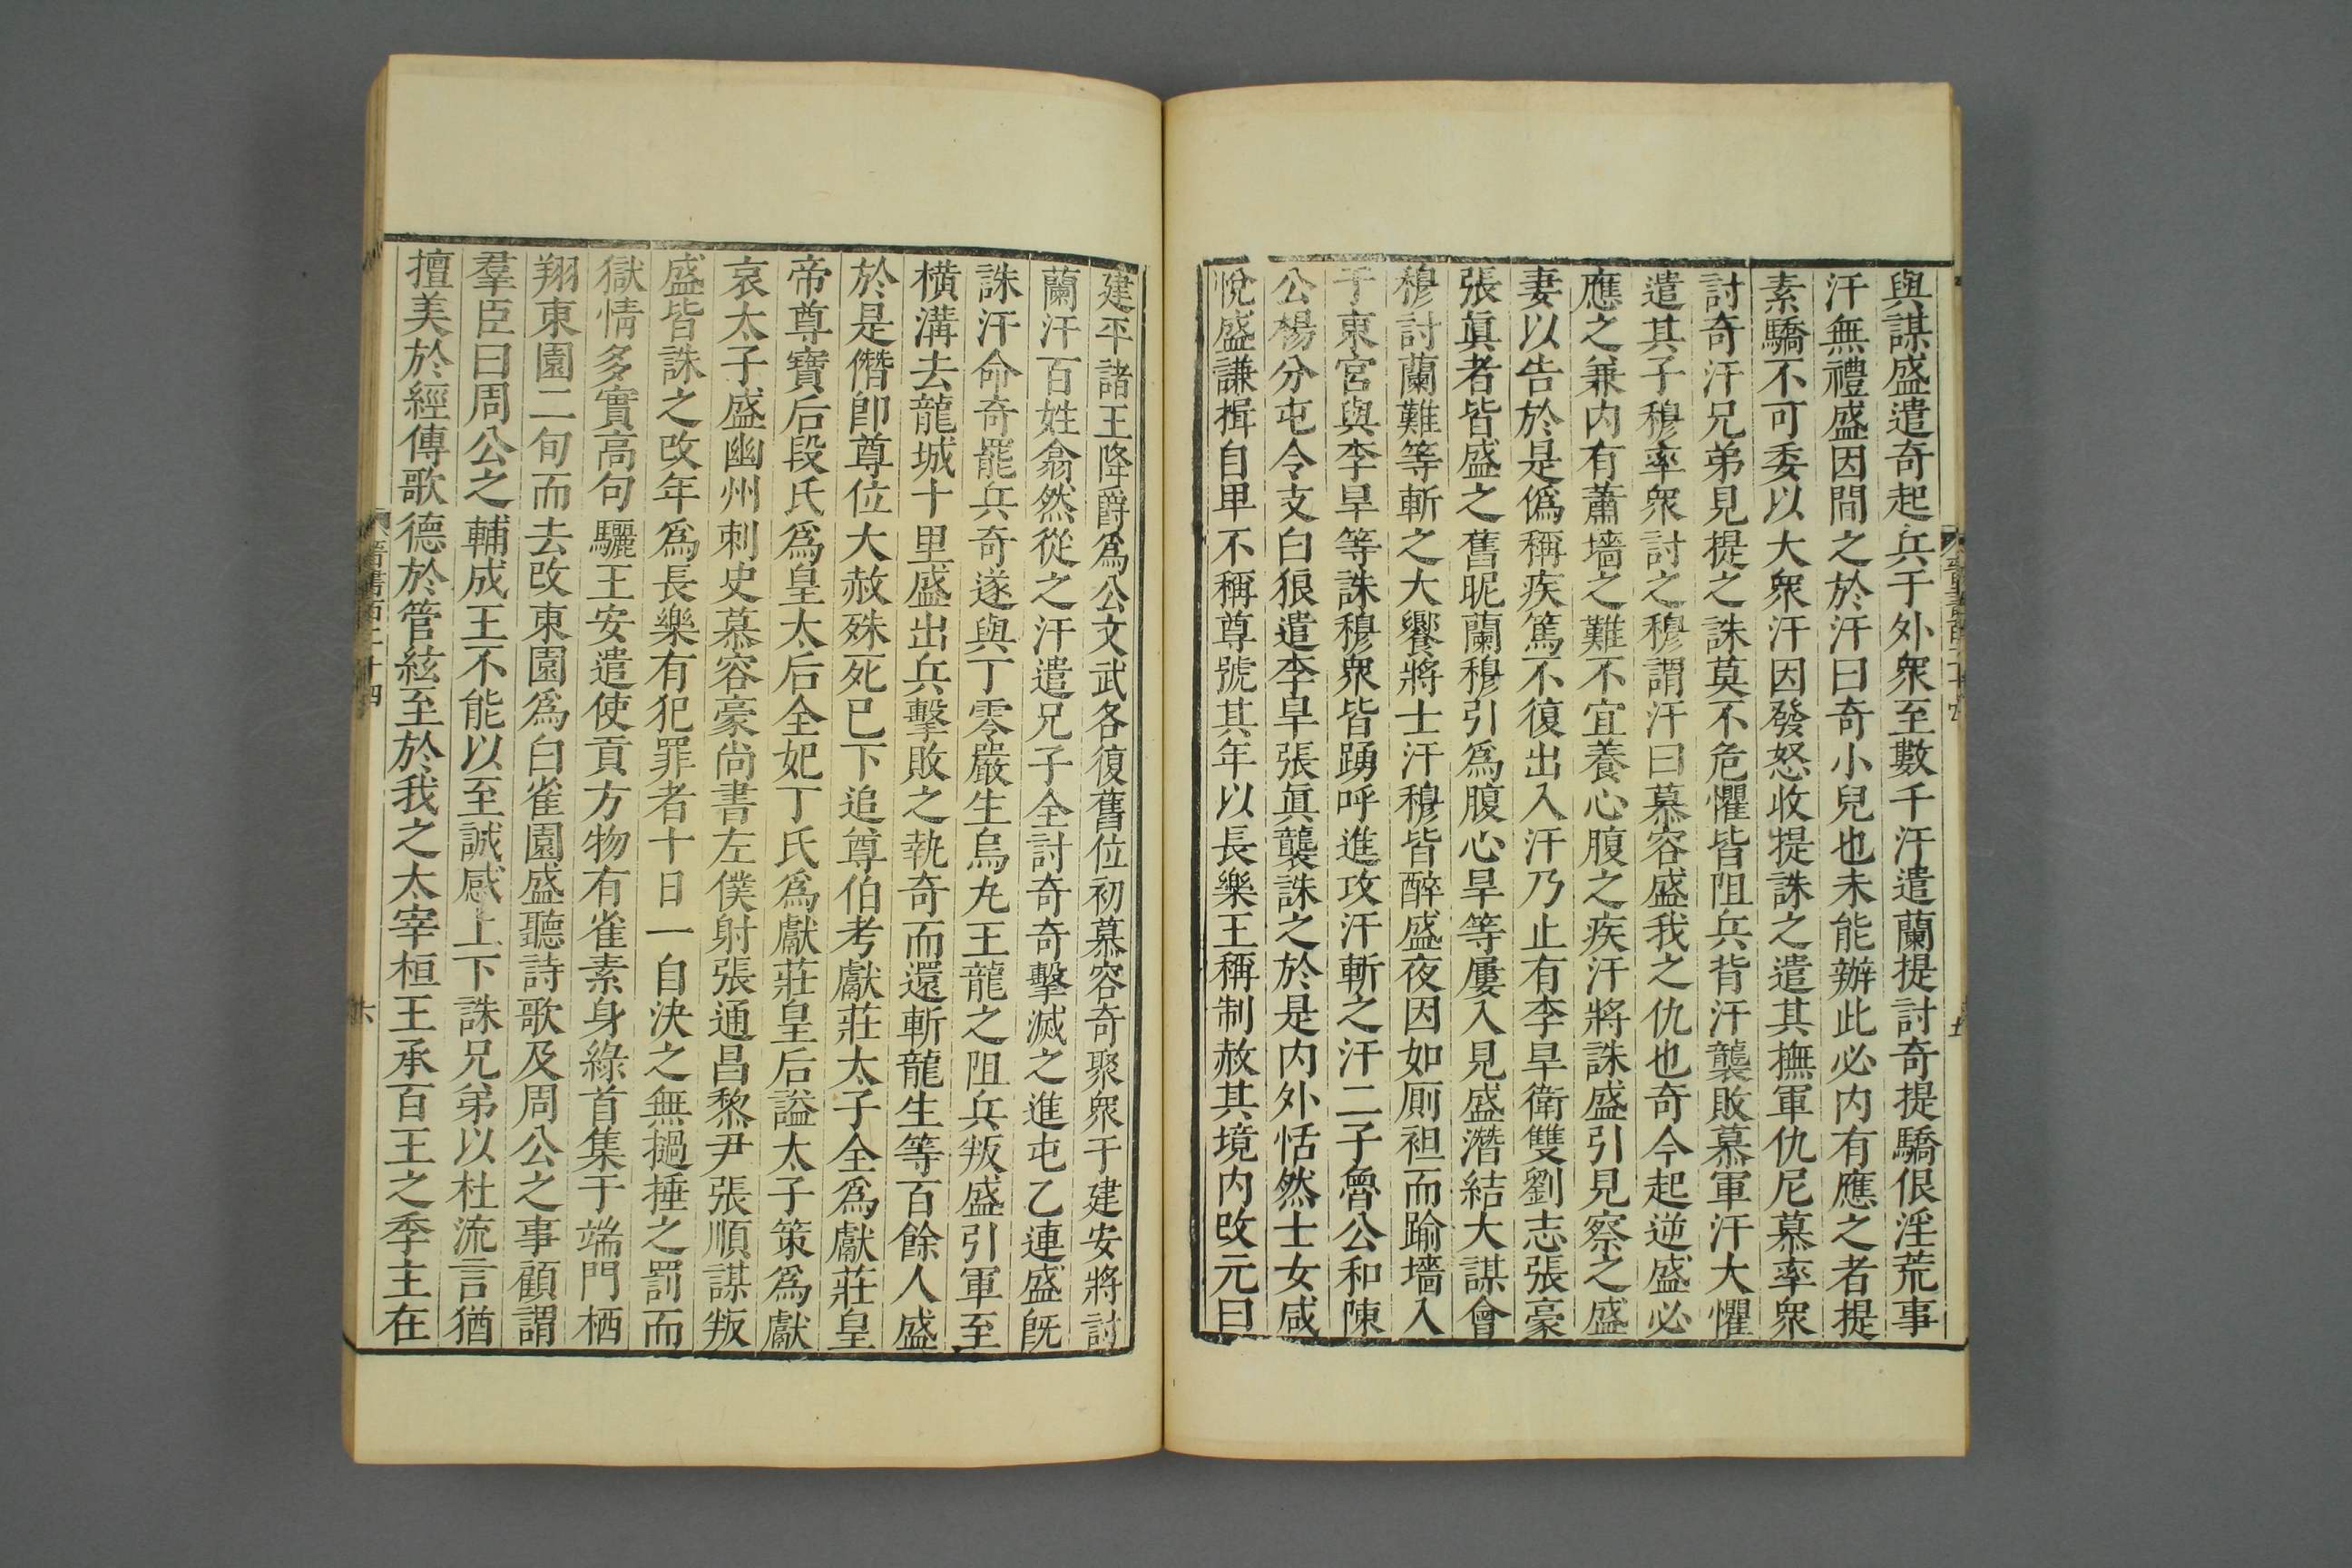 與謀盛遣奇起兵于外衆至數千汗遣蘭提討奇提驕佷淫荒事
汗無禮盛因間之於汗曰奇小兒也未能辦此必内有應之者提
素驕不可委以大衆汗因發怒收提誅之遣其撫軍仇尼慕率衆
討奇汗兄弟見提之誅莫不危懼皆阻兵背汗襲敗慕軍汗大懼
遣其子穆率衆討之穆謂汗曰慕容盛我之仇也奇今起逆盛必
應之兼内有蕭墻之難不宜養心腹之疾汗將誅盛引見察之盛
妻以告於是僞稱疾篤不復出入汗乃止有李旱衛雙劉志張豪
張眞者皆盛之舊昵蘭穆引爲腹心旱等屢入見盛潛結大謀會
穆討蘭難等斬之大饗將士汗穆皆醉盛夜因如厠袒而踰墻入
于東宮與李旱等誅穆衆皆踴呼進攻汗斬之汗二子魯公和陳
公楊分屯令支白狼遣李旱張眞襲誅之於是内外恬然士女咸
悅盛謙揖自甲不稱尊號其年以長樂王稱制赦其境内改元曰
建平諸王降爵爲公文武各復舊位初慕容奇聚衆于建安將討
蘭汗百姓翕然從之汗遣兄子全討奇奇擊滅之進屯乙連盛旣
誅汗命奇罷兵奇遂與丁零嚴生烏丸王龍之阻兵叛盛引軍至
橫溝去龍城十里盛出兵擊敗之執奇而還斬龍生等百餘人盛
於是僭卽尊位大赦殊死已下追尊伯考獻莊太子全爲獻莊皇
帝尊寶后段氏爲皇太后全妃丁氏爲獻莊皇后謚太子策爲獻
哀太子盛幽州刺史慕容豪尚書左僕射張通昌黎尹張順謀叛
盛皆誅之改年爲長樂有犯罪者十日一自決之無撾捶之罰而
獄情多實高句驪王安遣使貢方物有雀素身綠首集于端門栖
翔東園二旬而去改東園爲白雀園盛聽詩歌及周公之事顧謂
羣臣曰周公之輔成王不能以至誠感上下誅兄弟以杜流言猶
擅美於經傳歌德於管絃至於我之太宰桓王承百王之季主在
晉書百二十四
六